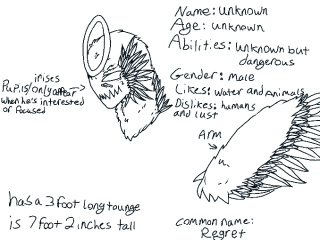 Name: unknown
Age: unknown
Abilities: unknown but
dangerous
Gender: male
Likes: water and Animals
Dislikes: humans
and lust
irises
Pupils/only appear
when he's interested
or focused
Arm
has a 3 foot long tounge
is 7 foot 2 inches tall
common name:
Regret